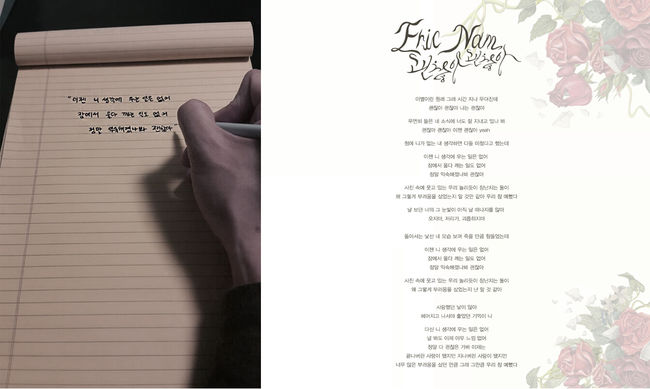 "이젠 니 생각에 우는 일은 없어
잠에서 울다 깨는 일도 없어
정말 익숙해졌나봐 괜찮아
Eric Nam
괜찮아 괜찮아
이별이란 원래 그래 시간 지나 무뎌진대
괜찮아 괜찮아 나는 괜찮아
우연히 들은 네 소식에 너도 잘 지내고 있나 봐
괜찮아 괜찮아 이젠 괜찮아 yeah
첨에 니가 없는 내 생각하면 다들 미쳤다고 했는데
이젠 니 생각에 우는 일은 없어
잠에서 울다 깨는 일도 없어
정말 익숙해졌나봐 괜찮아
사진 속에 웃고 있는 우리 놀리듯이 장난치는 둘이
왜 그렇게 부러움을 샀었는지 알 것만 같아 우리 참 예뻤다
날 보던 너의 그 눈빛이 아직 날 떠나지를 않아
오지마, 저리가, 괴롭히지마
돌아서는 낯선 네 모습 보며 죽을 만큼 힘들었는데
이젠 니 생각에 우는 일은 없어
잠에서 울다 깨는 일도 없어
정말 익숙해졌나봐 괜찮아
사진 속에 웃고 있는 우리 놀리듯이 장난치는 둘이
왜 그렇게 부러움을 샀었는지 난 알 것 같아
사랑했던 날이 많아
헤어지고 나서야 좋았던 기억이 나
다신 니 생각에 우는 일은 없어
널 봐도 이제 아무 느낌 없어
정말 다 괜찮은 가봐 이제는
끝나버린 사랑이 됐지만 지나버린 사랑이 됐지만
너무 많은 부러움을 샀던 만큼 그래 그만큼 우리 참 예뻤다